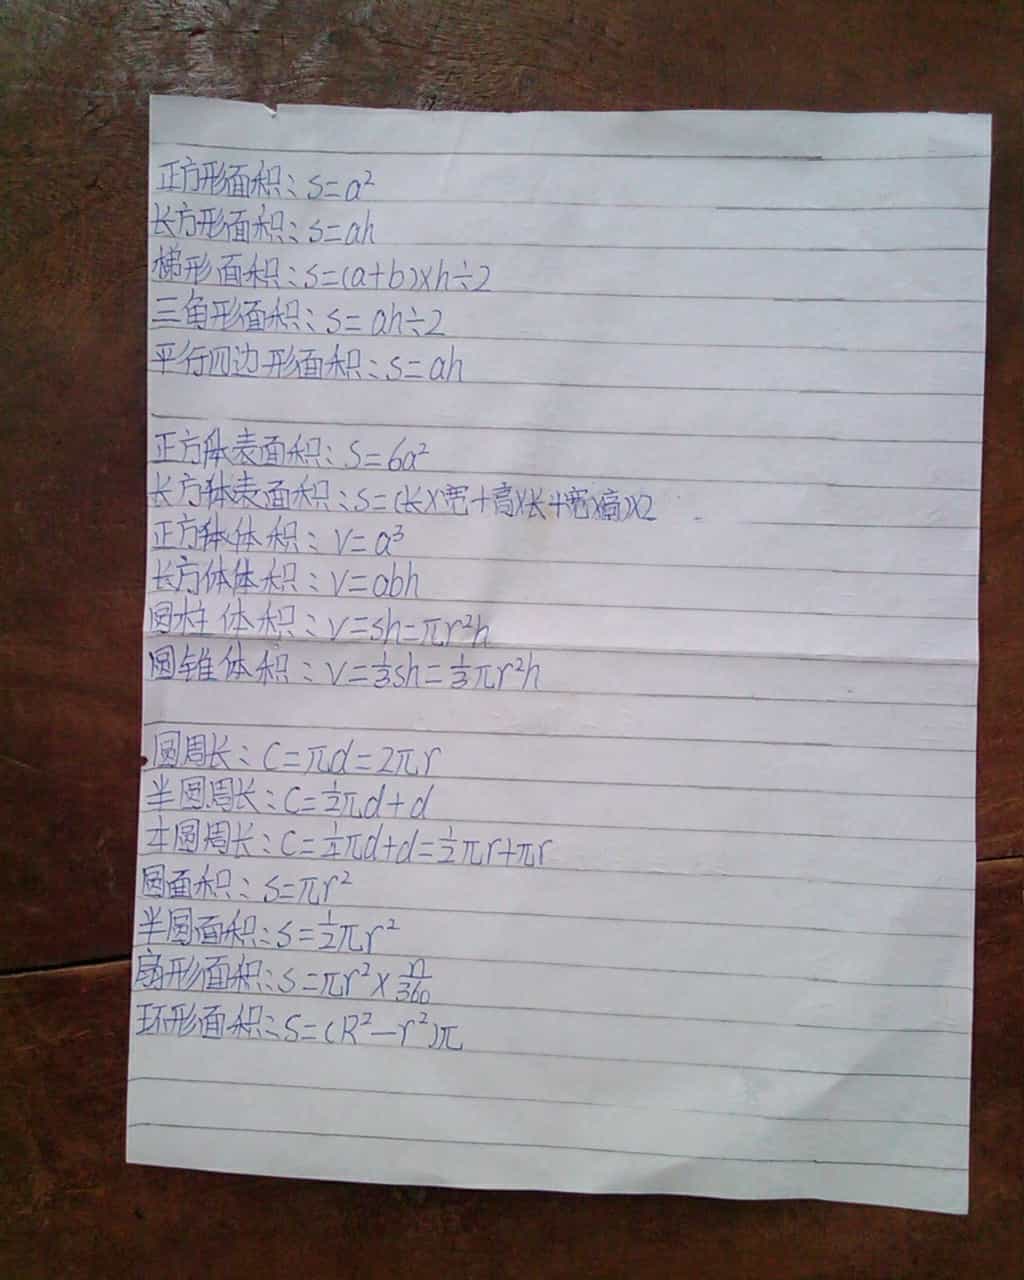 正方形面积: S=a²
长方形面积: S=ah
梯形面积: S=(a+b)×h÷2
三角形面积: S=ah÷2
平行四边形面积: S=ah
正方体表面积: S=6a²
长方体表面积: S=(长×宽+高×长+宽×高)×2
正方体体积: V=a³
长方体体积: V=abh
圆柱体积: V=sh=πr²h
圆锥体积: V=⅓sh=⅓πr²h
圆周长: C=πd=2πr
半圆周长: C=½πd+d
圆周长: C=¼πd+d=½πr+πr
圆面积: S=πr²
半圆面积: S=½πr²
扇形面积: S=πr²×n/360
环形面积: S=(R²-r²)π